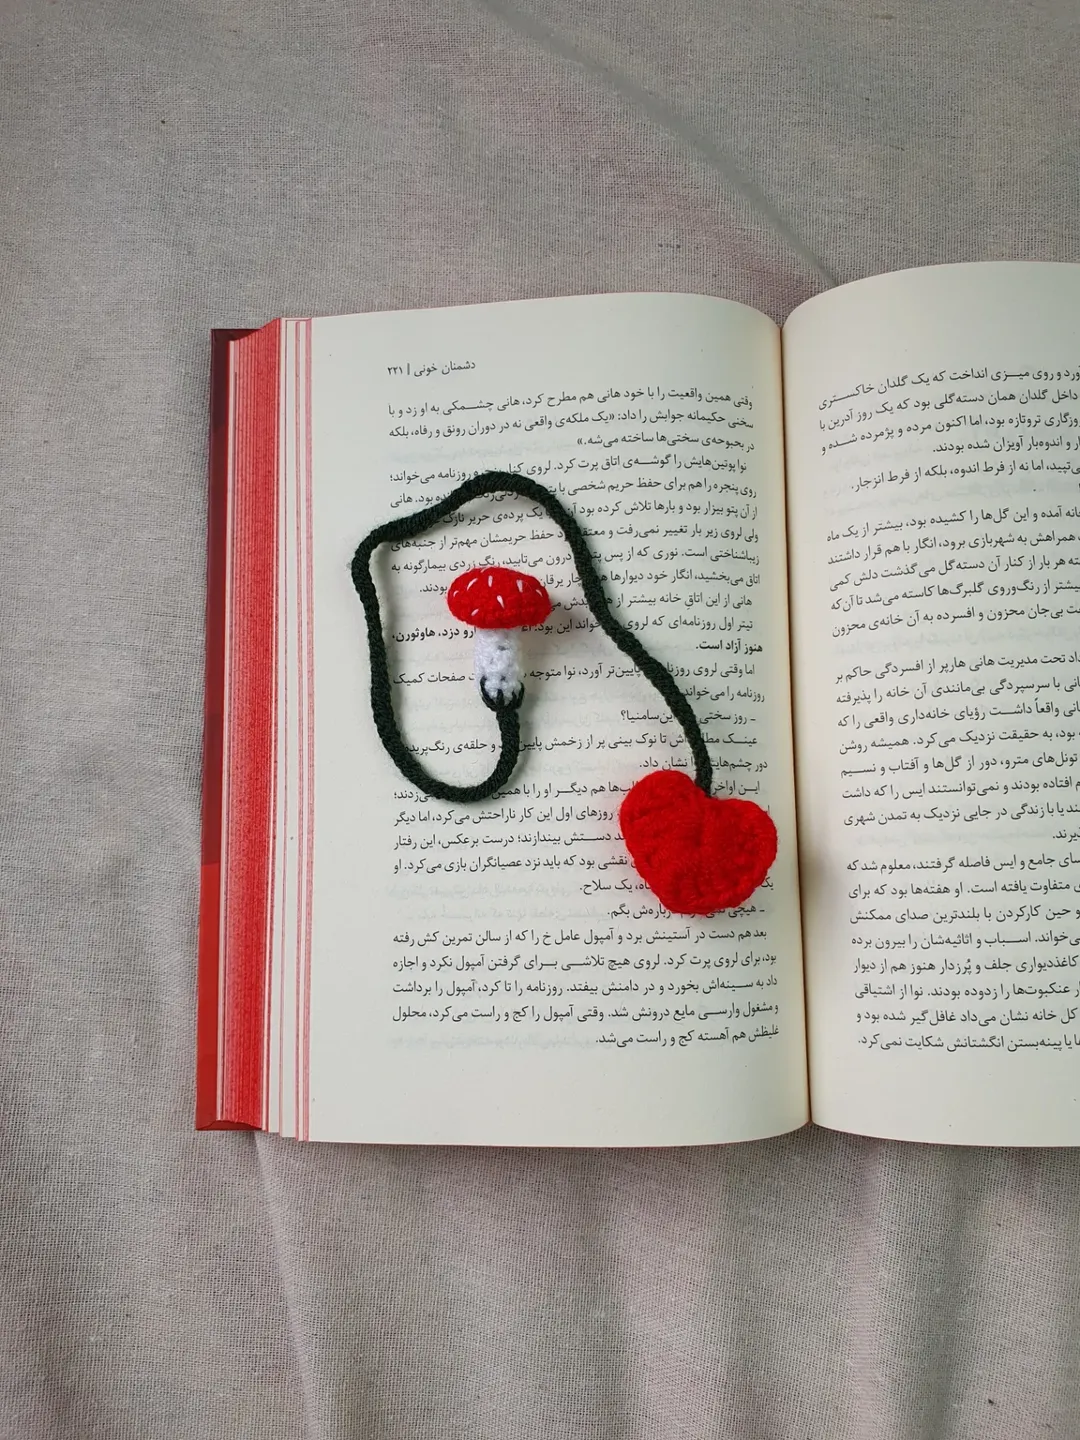 آورد و روی میــزی انداخت که یک گلدان خاکســتری
داخل گلدان همان دسته‌گلی بود که یک روز آدرین با
روزگاری تروتازه بود، اما اکنون مرده و پژمرده شــده و
ار و اندوه‌بار آویزان شده بودند.
می‌تپید، اما نه از فرط اندوه، بلکه از فرط انزجار.
خانه آمده و این گل‌ها را کشیده بود، بیشتر از یک ماه
همراهش به شهربازی برود، انگار با هم قرار داشتند
ته هر بار از کنار آن دسته‌گل می‌گذشت دلش کمی
بیشتر از رنگ‌وروی گلبرگ‌ها کاسته می‌شد تا آن‌که
ت بی‌جان محزون و افسرده به آن خانه‌ی محزون
داد تحت مدیریت هانی هارپر از افسردگی حاکم بر
انی با سرسپردگی بی‌مانندی آن خانه را پذیرفته
انی واقعاً داشــت رؤیای خانه‌داری واقعی را که
بود، به حقیقت نزدیک می‌کرد. همیشه روشن
تونل‌های مترو، دور از گل‌ها و آفتاب و نســیم
م افتاده بودند و نمی‌توانستند ایس را که داشت
ند یا با زندگی در جایی نزدیک به تمدن شهری
یرند.
سای جامع و ایس فاصله گرفتند، معلوم شد که
ی متفاوت یافته است. او هفته‌ها بود که برای
و حین کارکردن با بلندترین صدای ممکنش
ی‌خواند. اســباب و اثاثیه‌شان را بیرون برده
کاغذدیواری جلف و پُرزدار هنوز هم از دیوار
ار عنکبوت‌ها را زدوده بودند. نوا از اشتیاقی
کل خانه نشان می‌داد غافل‌گیر شده بود و
ها یا پینه‌بستن انگشتانش شکایت نمی‌کرد.
دشمنان خونی | ۲۲۱
وقتی همین واقعیت را با خود هانی هم مطرح کرد، هانی چشــمکی به او زد و با
سخنی حکیمانه جوابش را داد: «یک ملکه‌ی واقعی نه در دوران رونق و رفاه، بلکه
در بحبوحه‌ی سختی‌ها ساخته می‌شه.»
نوا پوتین‌هایش را گوشــه‌ی اتاق پرت کرد. لروی کنار پنجره روزنامه می‌خواند؛
روی پنجره را هم برای حفظ حریم شخصی با بود. هانی
از آن پتو بیزار بود و بارها تلاش کرده بود آن یک پرده‌ی حریر نازک
ولی لروی زیر بار تغییر نمی‌رفت و معتقد حفظ حریمشان مهم‌تر از جنبه‌های
زیباشناختی است. نوری که از پس پتو درون می‌تابید، رنگ زردی بیمارگونه به
اتاق می‌بخشید، انگار خود دیوارها هم یرقان بودند.
هانی از این اتاقِ خانه بیشتر از همه بدش می
تیتر اول روزنامه‌ای که لروی می‌خواند این بود: دزد، هاوثورن،
هنوز آزاد است.
اما وقتی لروی روزنامه پایین‌تر آورد، نوا متوجه صفحات کمیک
روزنامه را می‌خواند.
ـ روز سختی این‌سامنیا؟
عینــک ش تا نوک بینی پر از زخمش پایین و حلقه‌ی رنگ‌پریده
دور چشم‌هایش را نشان داد.
ایــن اواخر لب‌ها هم دیگــر او را با همین می‌زدند؛
روزهای اول این کار ناراحتش می‌کرد، اما دیگر
دســتش بیندازند؛ درست برعکس، این رفتار
نقشی بود که باید نزد عصیانگران بازی می‌کرد. او
یک یک سلاح.
ـ هیچی درباره‌ش بگم.
بعد هم دست در آستینش برد و آمپول عامل خ را که از سالن تمرین کش رفته
بود، برای لروی پرت کرد. لروی هیچ تلاشــی بــرای گرفتن آمپول نکرد و اجازه
داد به ســینه‌اش بخورد و در دامنش بیفتد. روزنامه را تا کرد، آمپول را برداشت
و مشغول وارســی مایع درونش شد. وقتی آمپول را کج و راست می‌کرد، محلول
غلیظش هم آهسته کج و راست می‌شد.